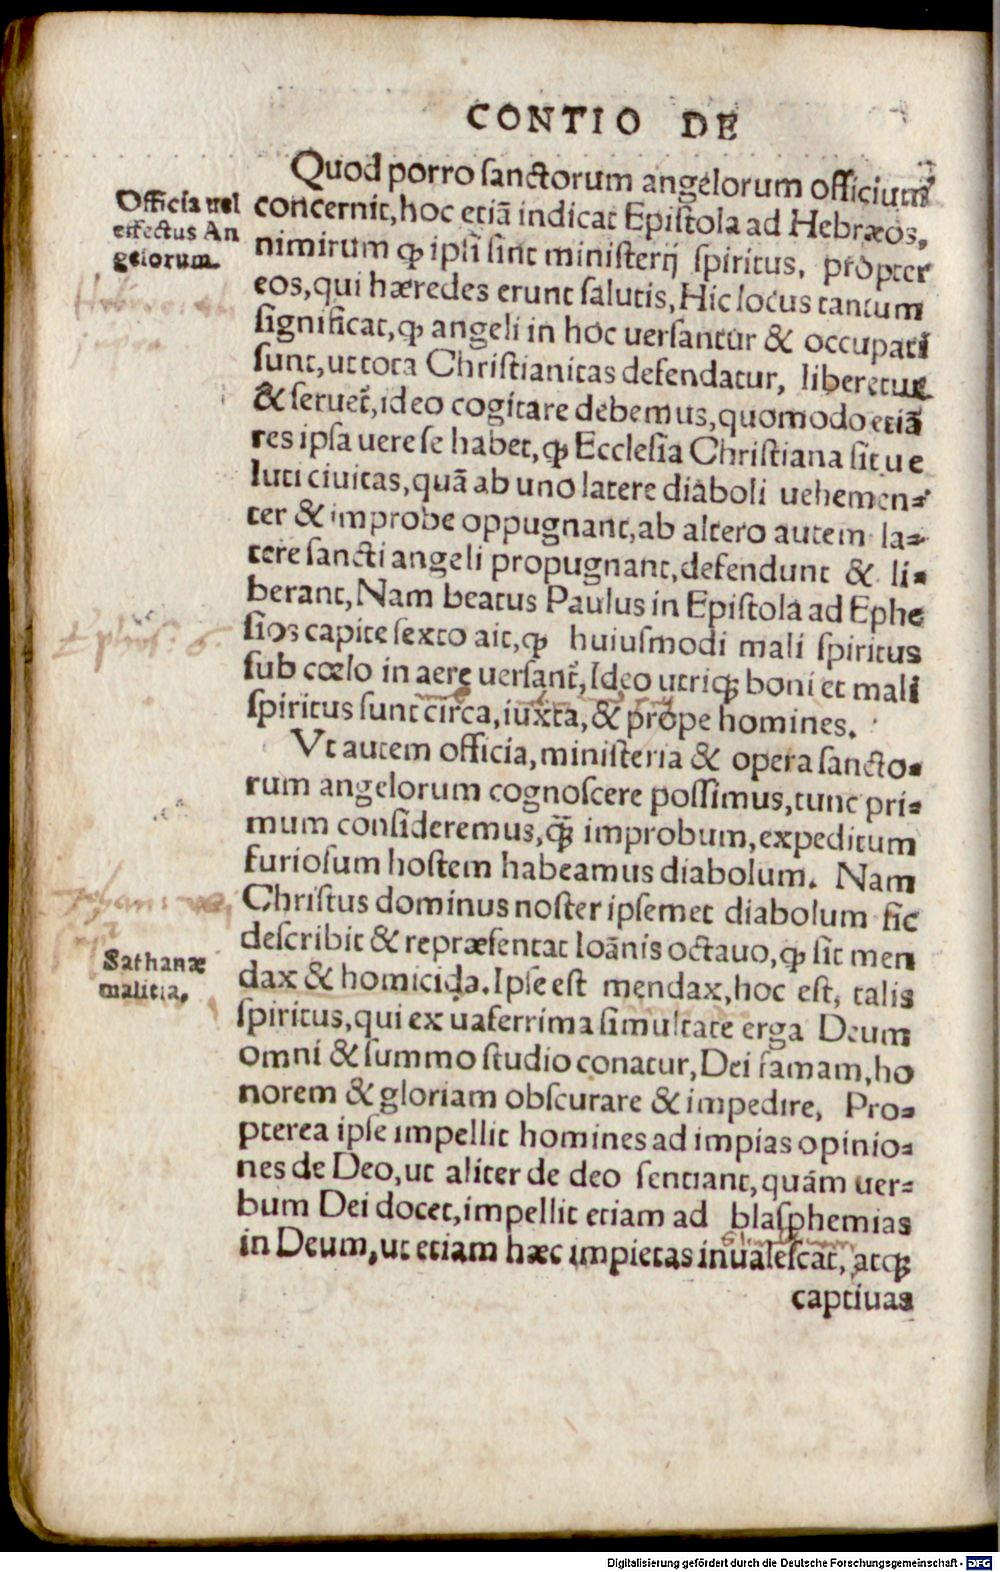 CONTIO DE
Quod porro sanctorum angelorum officium
Officia uel
effectus An
gelorum.
concernit, hoc etiã indicat Epistola ad Hebræos,
nimirum ꝙ ipsi sint ministerij spiritus, propter
eos, qui hæredes erunt salutis, Hic locus tantum
significat, ꝙ angeli in hoc uersantur & occupati
sunt, ut tota Christianitas defendatur, liberetur
& seruet᷑, ideo cogitare debemus, quomodo etiã
res ipsa uere se habet, ꝙ Ecclesia Christiana sit ue
luti ciuitas, quã ab uno latere diaboli uehemen⸗
ter & improbe oppugnant, ab altero autem la⸗
tere sancti angeli propugnant, defendunt & li⸗
berant, Nam beatus Paulus in Epistola ad Ephe
Ephes: 6.
sios capite sexto ait, ꝙ huiusmodi mali spiritus
sub cœlo in aere uersant᷑, Ideo utriqꝫ boni et mali
spiritus sunt circa, iuxta, & prope homines.
Vt autem officia, ministeria & opera sancto⸗
rum angelorum cognoscere possimus, tunc pri⸗
mum consideremus, q̃ improbum, expeditum
furiosum hostem habeamus diabolum. Nam
Christus dominus noster ipsemet diabolum sic
describit & repræsentat Ioãnis octauo, ꝙ sit men
Sathanæ
malitia,
dax & homicida. Ipse est mendax, hoc est, talis
spiritus, qui ex uaferrima simultate erga Deum
omni & summo studio conatur, Dei famam, ho
norem & gloriam obscurare & impedire, Pro⸗
pterea ipse impellit homines ad impias opinio⸗
nes de Deo, ut aliter de deo sentiant, quám uer⸗
bum Dei docet, impellit etiam ad blasphemias
in Deum, ut etiam hæc impietas inualescat, atqꝫ
captiuas
Digitalisierung gefördert durch die Deutsche Forschungsgemeinschaft - DFG